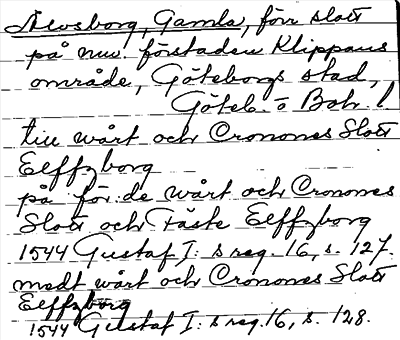 Älvsborg, Gamla, förr slott
på nuv. förstaden Klippans
område, Göteborgs stad,
Göteb. o Boh. l.
till wårt och Cronones Slott
Eelffzborg
på för:de wårt och Cronones
Slott och Fäste Eelffzborg
1544 Gustaf I: s reg. 16, s. 127.
medt wårt och Cronones Slott
Eelffzborg
1544 Gustaf I: s reg. 16, s. 128.